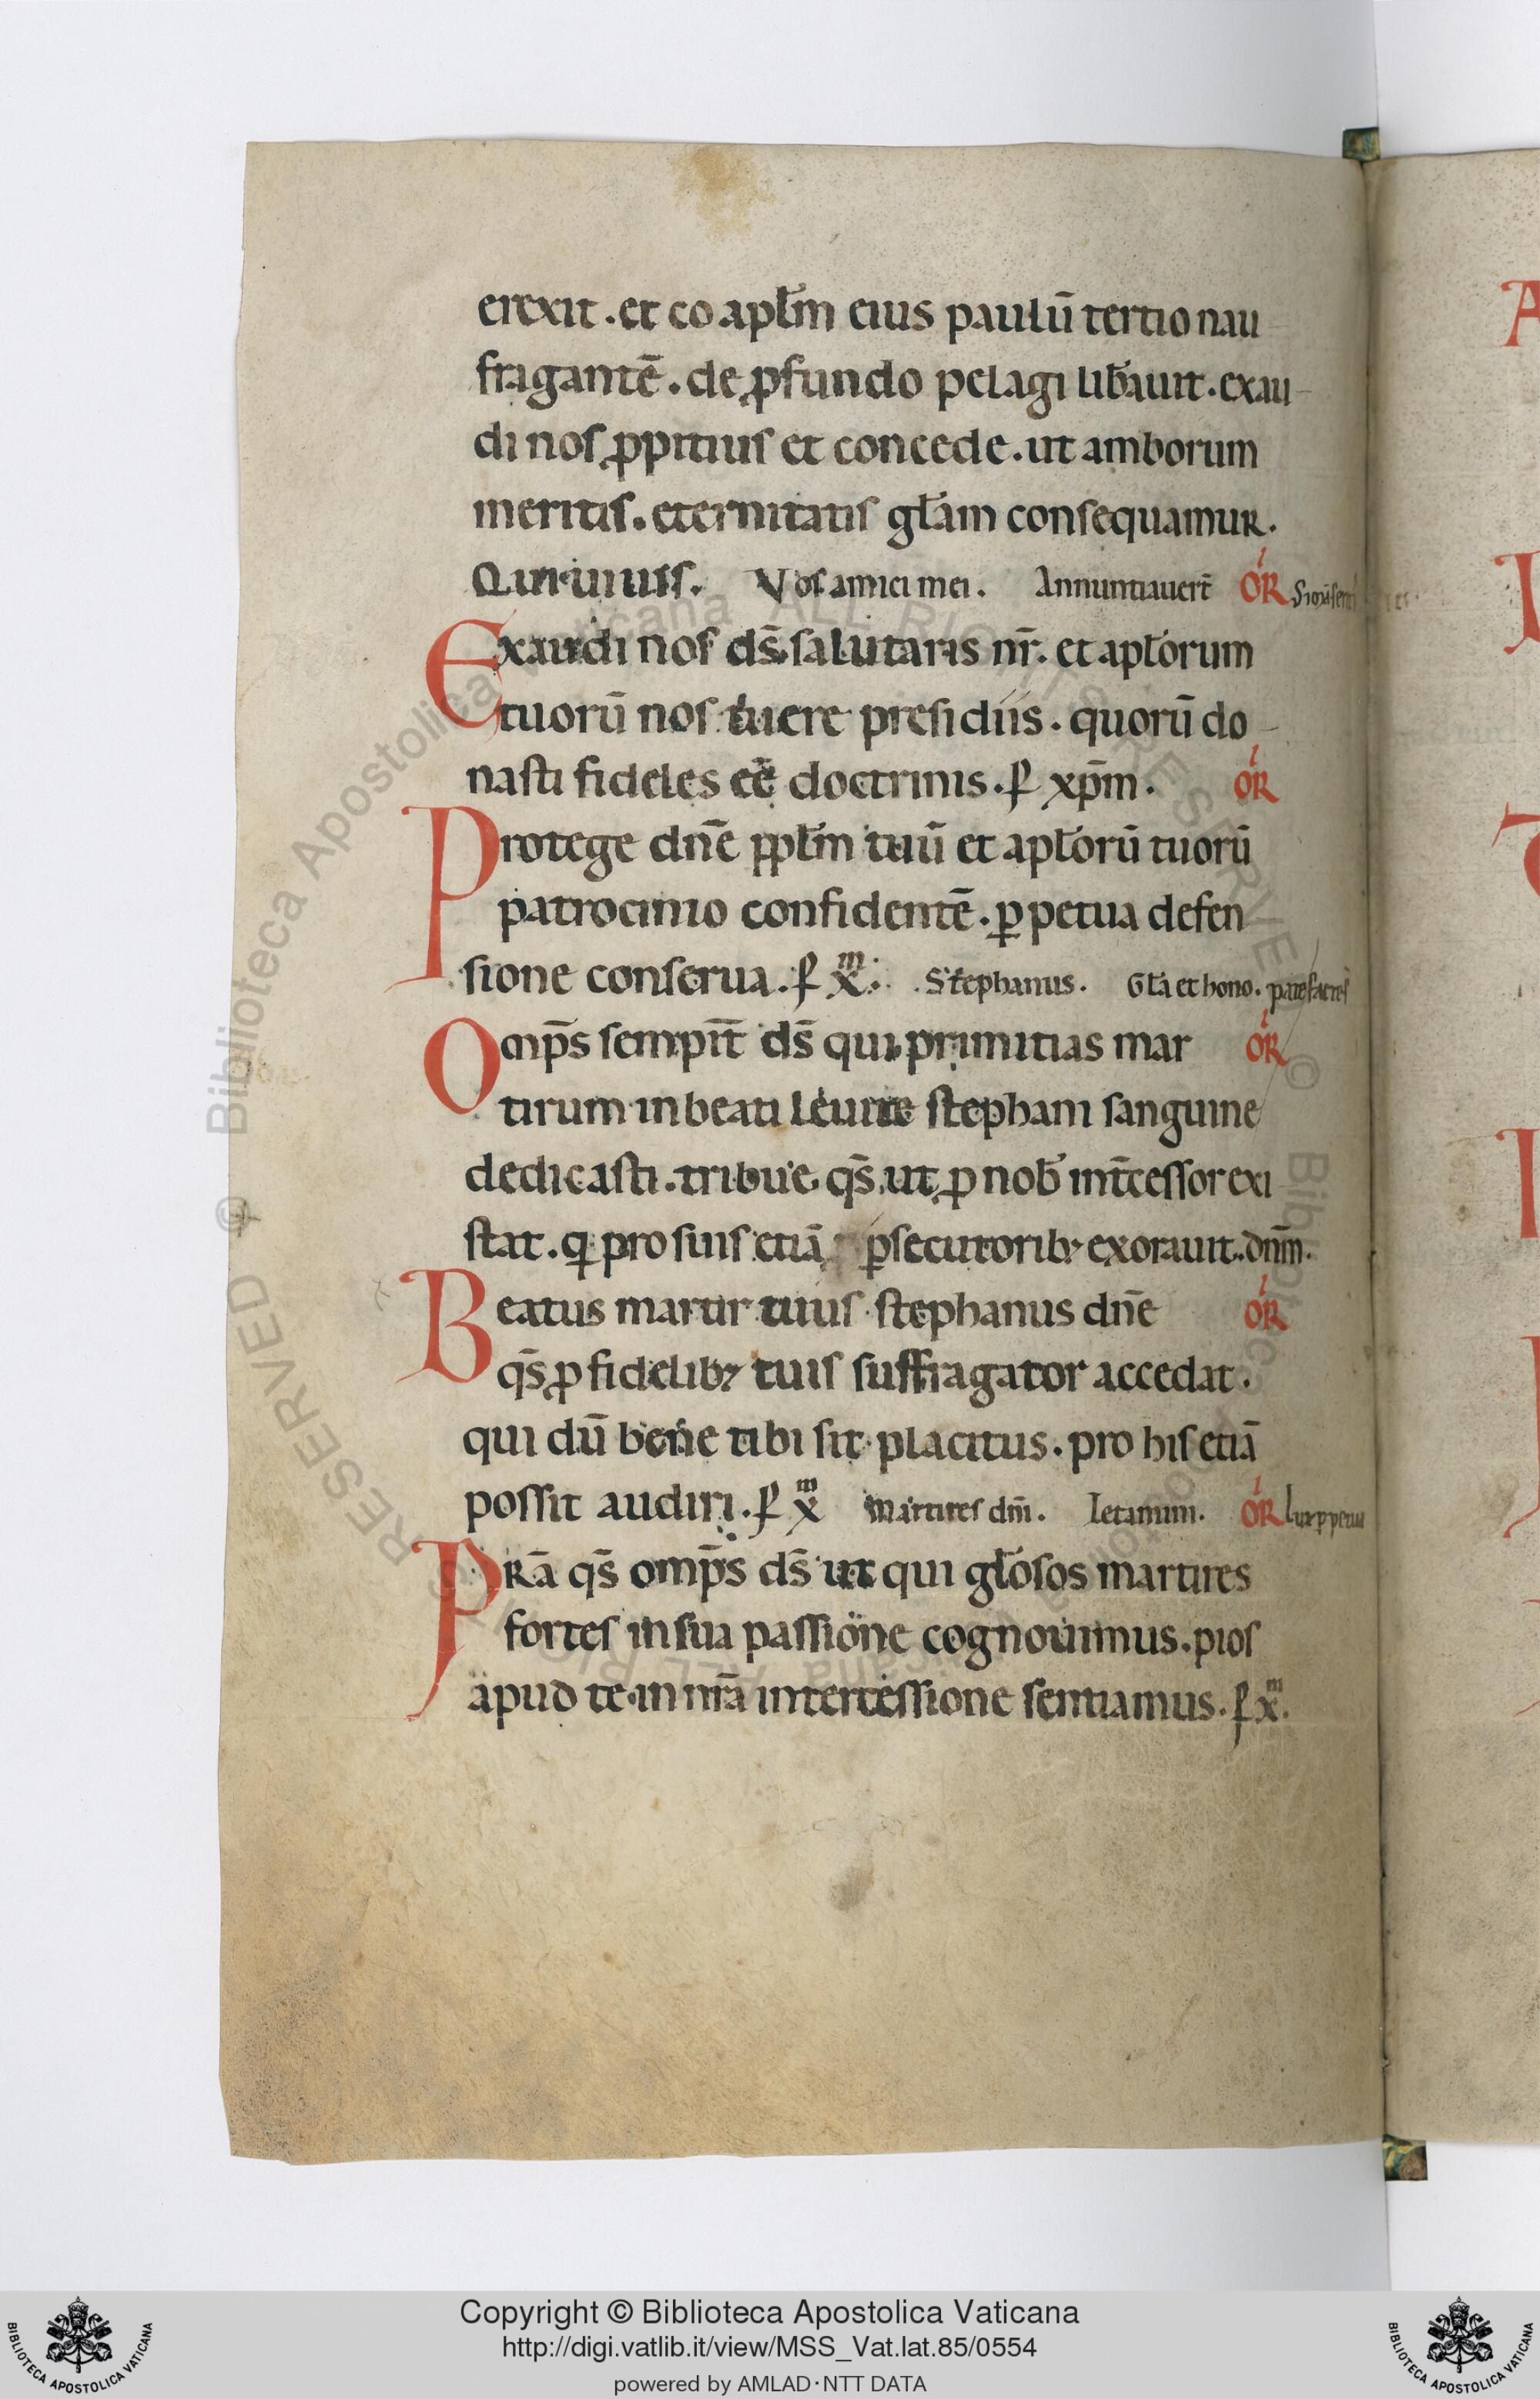 erexit . et co apl̄m eius paulū tertio nau
fragantē . de ꝓfundo pelagi lib̄auit . exau-
di nos ꝓpitius et concede . ut amborum
meritis . eternitatis gl̄am consequamur .
Vos amici mei . Annuntiauerт̄ OR
Exaudi nos ds̄ salutaris nr̄ . et apl̄orum
tuorū nos tuere presidiis . quorū do-
nasti fideles eē doctrinis . ꝑ xp̄m . OR
Protege dn̄e ppl̄m tuū et apl̄orū tuorū
patrocinio confidentē . ꝑpetua defen
sione conserua . ꝑ x̄m . Stephanus . Gl̄a et hono .
Omp̄s sempit̄ ds̄ qui primitias mar OR
tirum in beati leuite stephani sanguine
dedicasti . tribue qs̄ ut ꝓ nob̄ int̄cessor exi
stat . q pro suis etiā ꝑsecutorib; exorauit . dn̄m .
Beatus martir tuus stephanus dn̄e OR
qs̄ ꝓ fidelib; tuis suffragator accedat .
qui dū bene tibi sit placitus . pro his etiā
possit audiri . ꝑ x̄m Martires dn̄i . Letamini . OR lux ꝑpetua
PRā qs̄ omp̄s ds̄ ut qui gl̄osos martires
fortes in sua passione cognouimus . pios
apud te in nr̄a intercessione sentiamus . ꝑ x̄m .
© Biblioteca Apostolica Vaticana ALL RIGHTS RESERVED
Copyright © Biblioteca Apostolica Vaticana
http://digi.vatlib.it/view/MSS_Vat.lat.85/0554
powered by AMLAD·NTT DATA
BIBLIOTECA APOSTOLICA VATICANA
BIBLIOTECA APOSTOLICA VATICANA